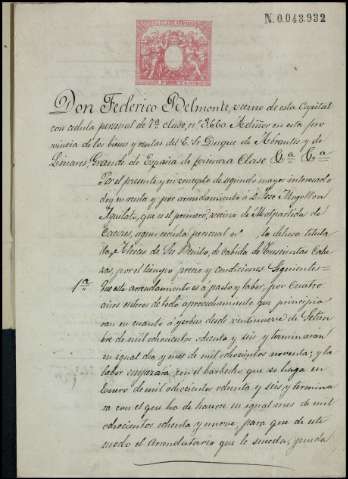 N. 0.043.932
Don Federico Belmonte, vecino de esta Capital
con cedula personal de 7ª clase, nº 3660 Admor en esta pro
vincia de los bienes y rentas del E. S. Duque de Abrantes y de
Linares, Grande de España de primera Clase &ª &ª
Por el presente y en concepto de segundo mayor interesado
doy en renta y por arrendamiento á D. Jose Mogollon
que es el primero, vecino de Malpartida de
Caceres, segun cedula personal nº la dehesa titula
da de cabida de Cabe
zas por el tiempo, precio y condiciones siguientes =
1ª Que este arrendamiento es a pasto y labor, por cuatro
años enteros de todo aprovechamiento que principia
ran en cuanto á yerbas desde veintinueve de Setiem
bre de mil ochocientos ochenta y seis y terminaran
en igual dia y mes de mil ochocientos noventa; y la
labor empezará con el barbecho que se haga en
Enero de mil ochocientos ochenta y seis y termina
ra con el que ha de hacerse en igual mes de mil
ochocientos ochenta y nueve, para que de este
modo el Arrendatario que le suceda, pueda